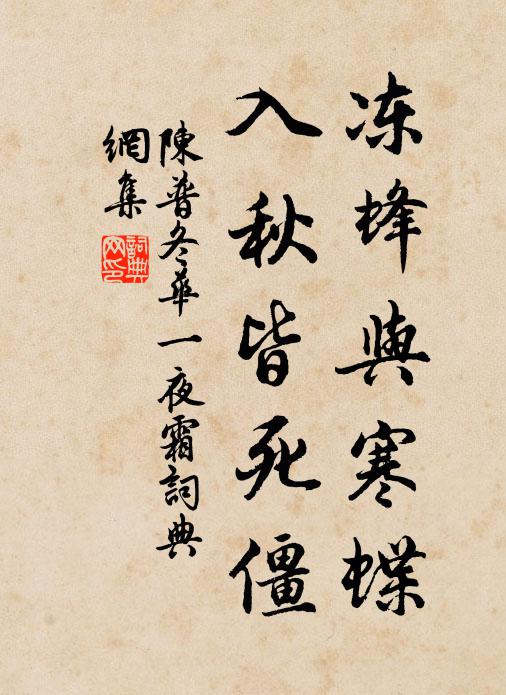 冻蜂與寒蝶
入秋皆死僵
陳普冬華一夜霜詞典
網集
詞典
网印